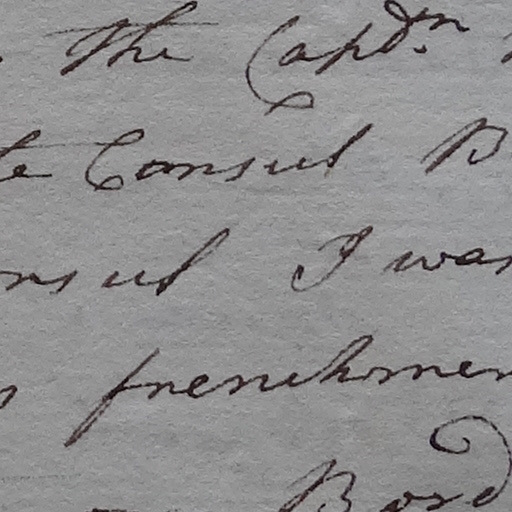 the Capdn
te Consul B
nsul I was
frenchmen
Bord